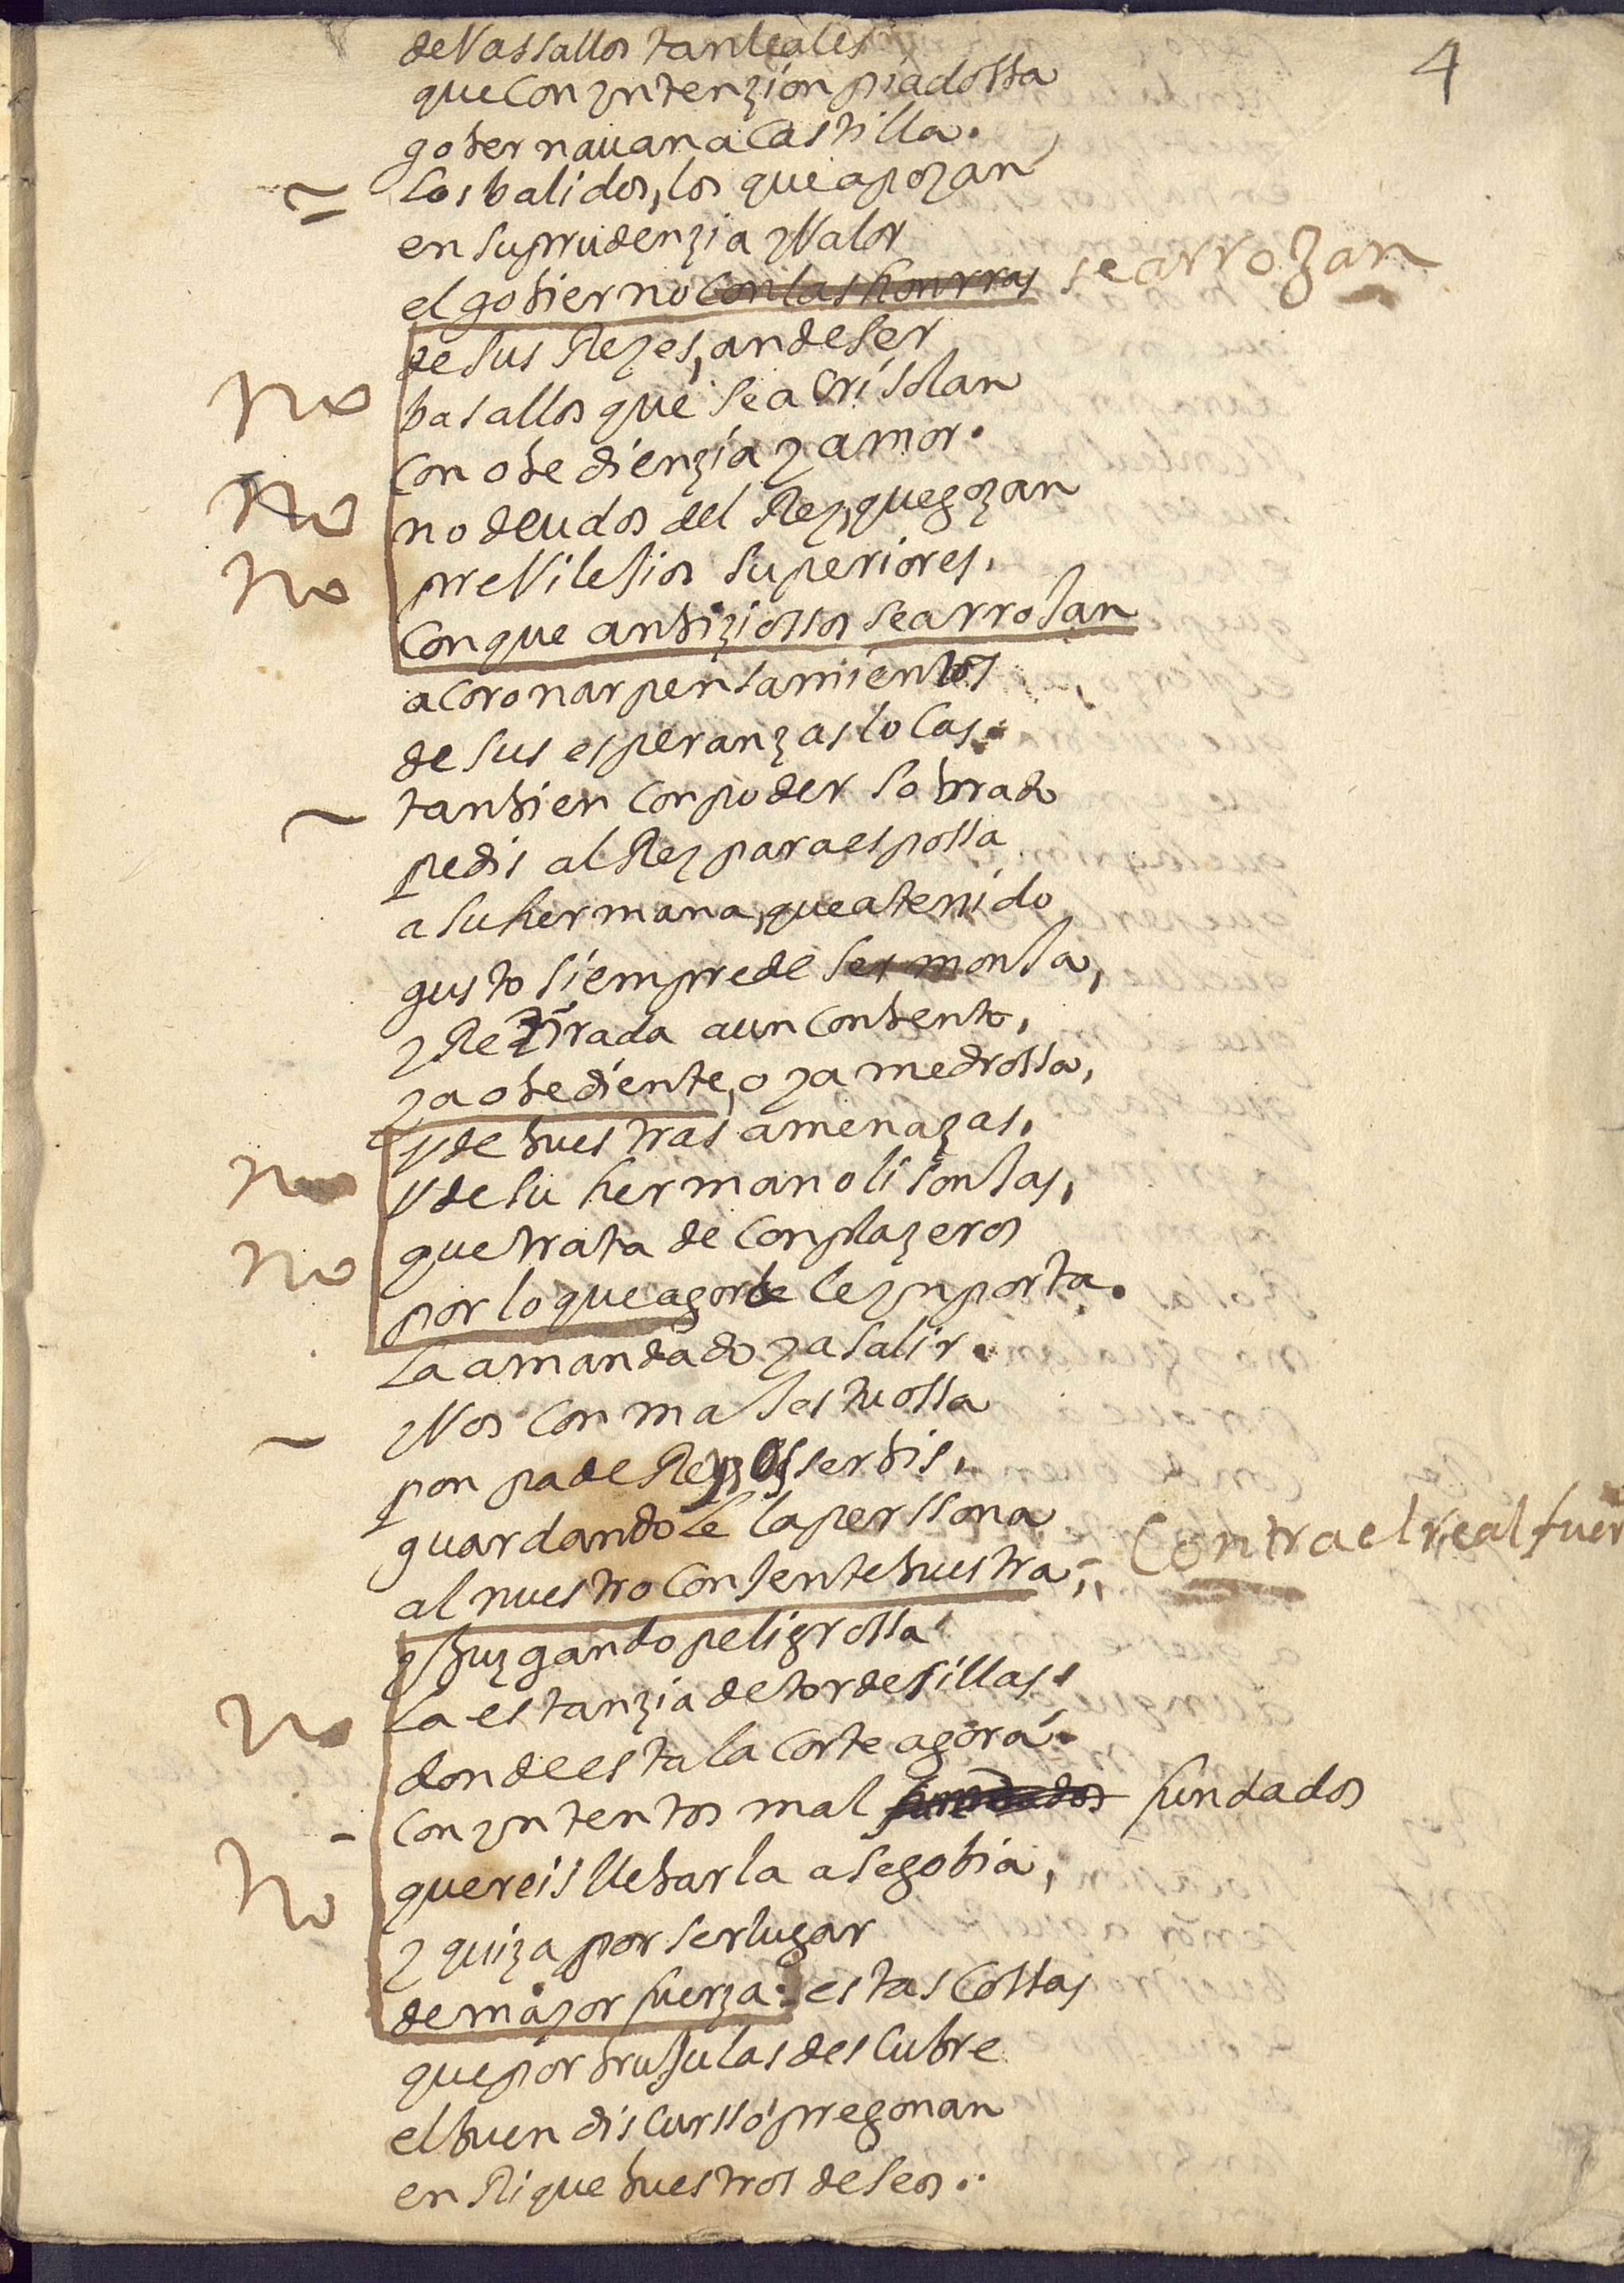 4
de Vassallos tan leales
que con yntenzion piadossa
gobernauan a Castilla.
Los balidos, los que apoyan
en su prudenzia y Valor
el gobierno con las honrras se arrojan
de sus Reyes, an de ser
no basallos que se acrisolan
con obedienzia y amor.
no no deudos del Rey, que gozan
no preVilejios superiores,
con que anbiziossos se arrojan
a coronar pensamientos
de sus esperanzas locas.
tanbien con poder sobrado
pedis al Rey para espossa
a su hermana, que a tenido
gusto siempre de ser monja,
y Retirada a un conbento,
ya obediente, o ya medrossa,
ya de buestras amenazas,
no ya de su hermano lisonjas,
que trata de conplazeros
no por lo que agora le ynporta.
La a mandado ya salir.
y Vos con majestuossa
ponpa de Rey os serbis,
guardandole la perssona
al nuestro con jente buestra, contra el real fuer
y juzgando peligrossa
no la estanzia de tordesillas
donde esta la corte agora.
con yntentos mal fundados
no quereis llebarla a segobia,
y quiza por ser lugar
de mayor fuerza. estas cossas
que por brujulas descubre
el buen discursso pregonan
enRique buestros deseos.